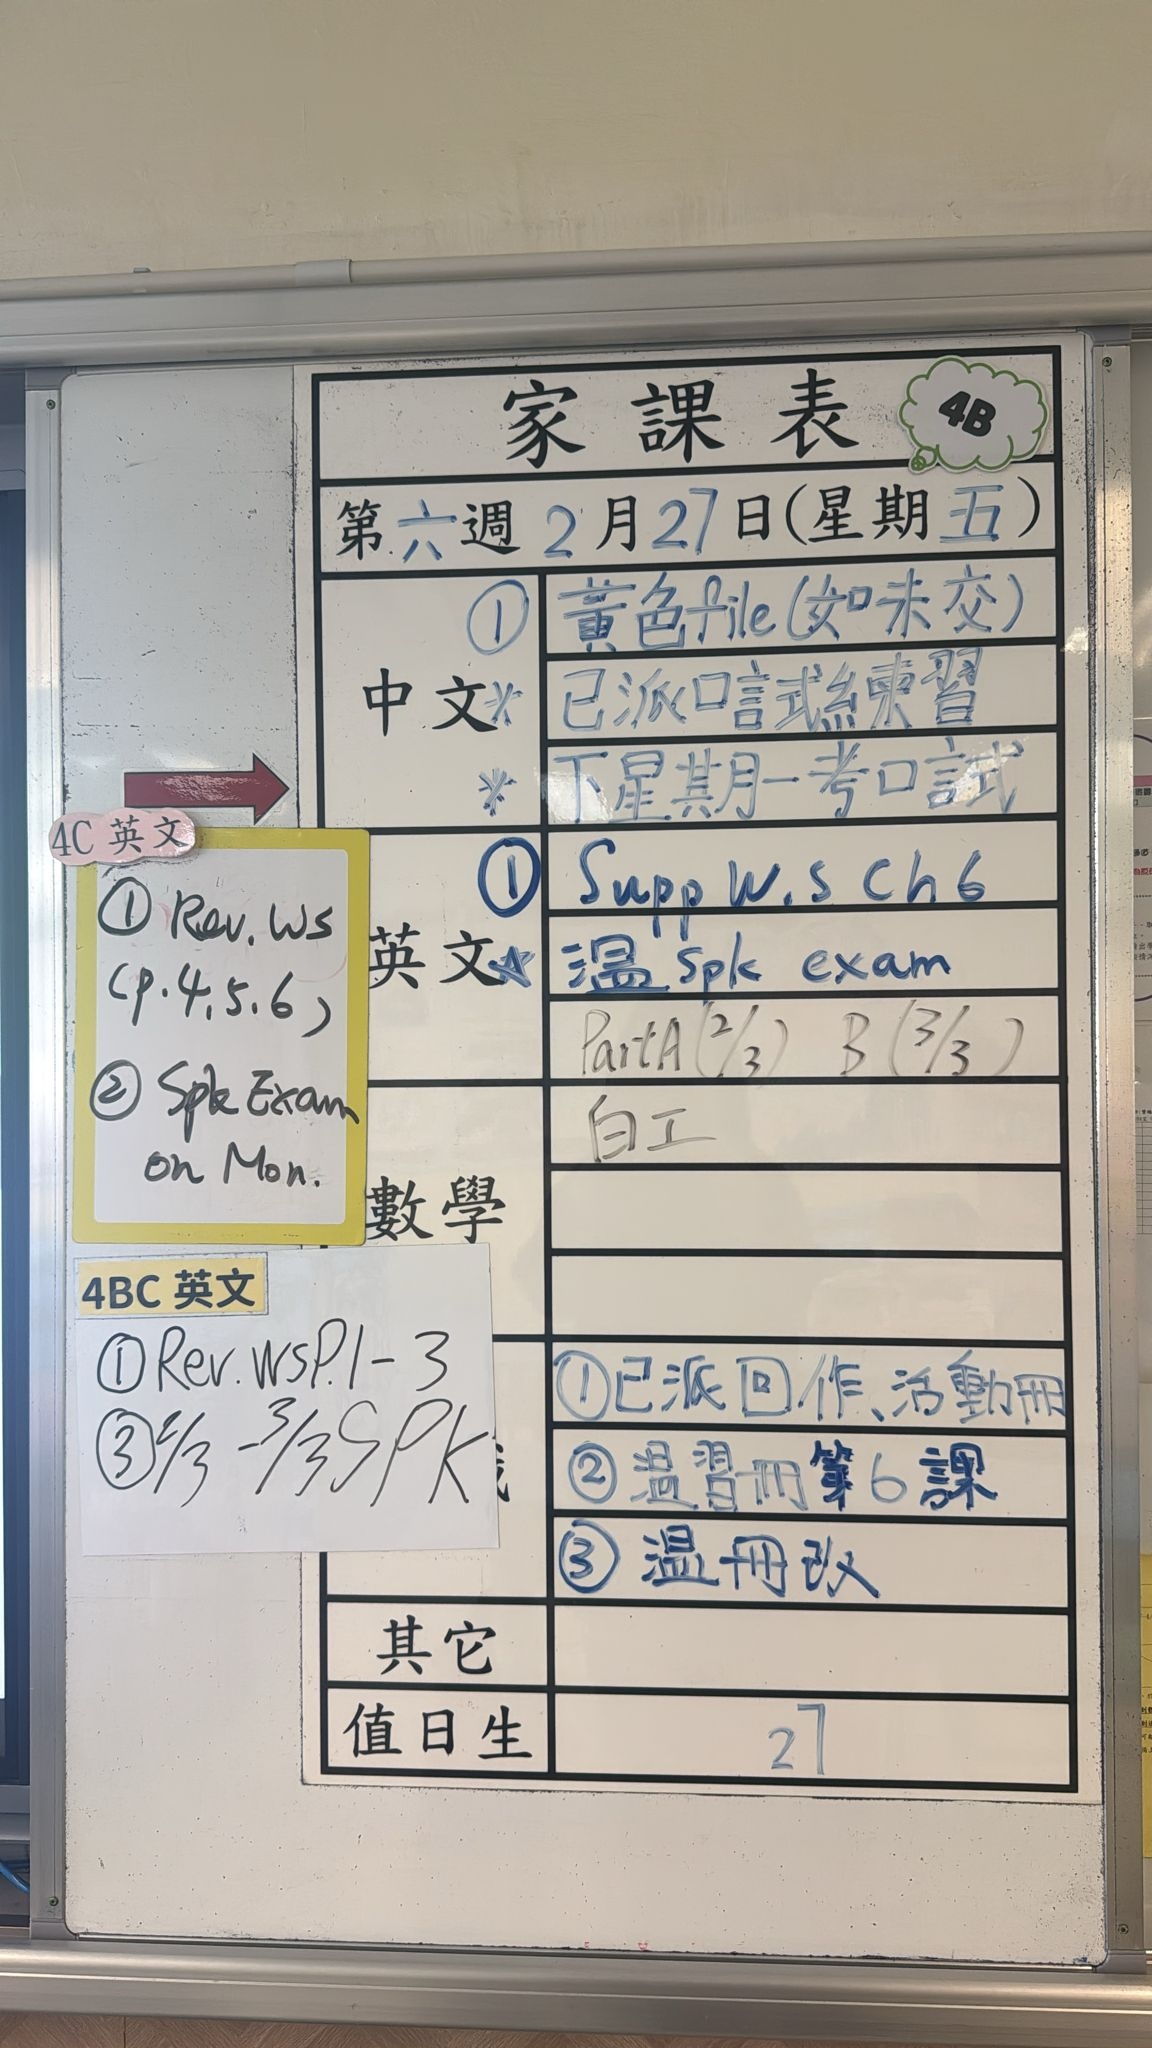 家課表 4B
第六週 2月27日(星期五)
中文
① 黃色file(如未交)
* 已派口試練習
* 下星期一考口試
英文
① Supp W.S Ch 6
☆ 溫 spk exam
Part A (2/3) B (3/3)
數學
白工
①已派回作、活動冊
②溫習冊第6課
③溫冊改
其它
值日生 27
4C 英文
① Rev. WS
(p.4,5,6)
② Spk Exam
on Mon.
4BC 英文
①Rev.WSP.1-3
③2/3-3/3SPK